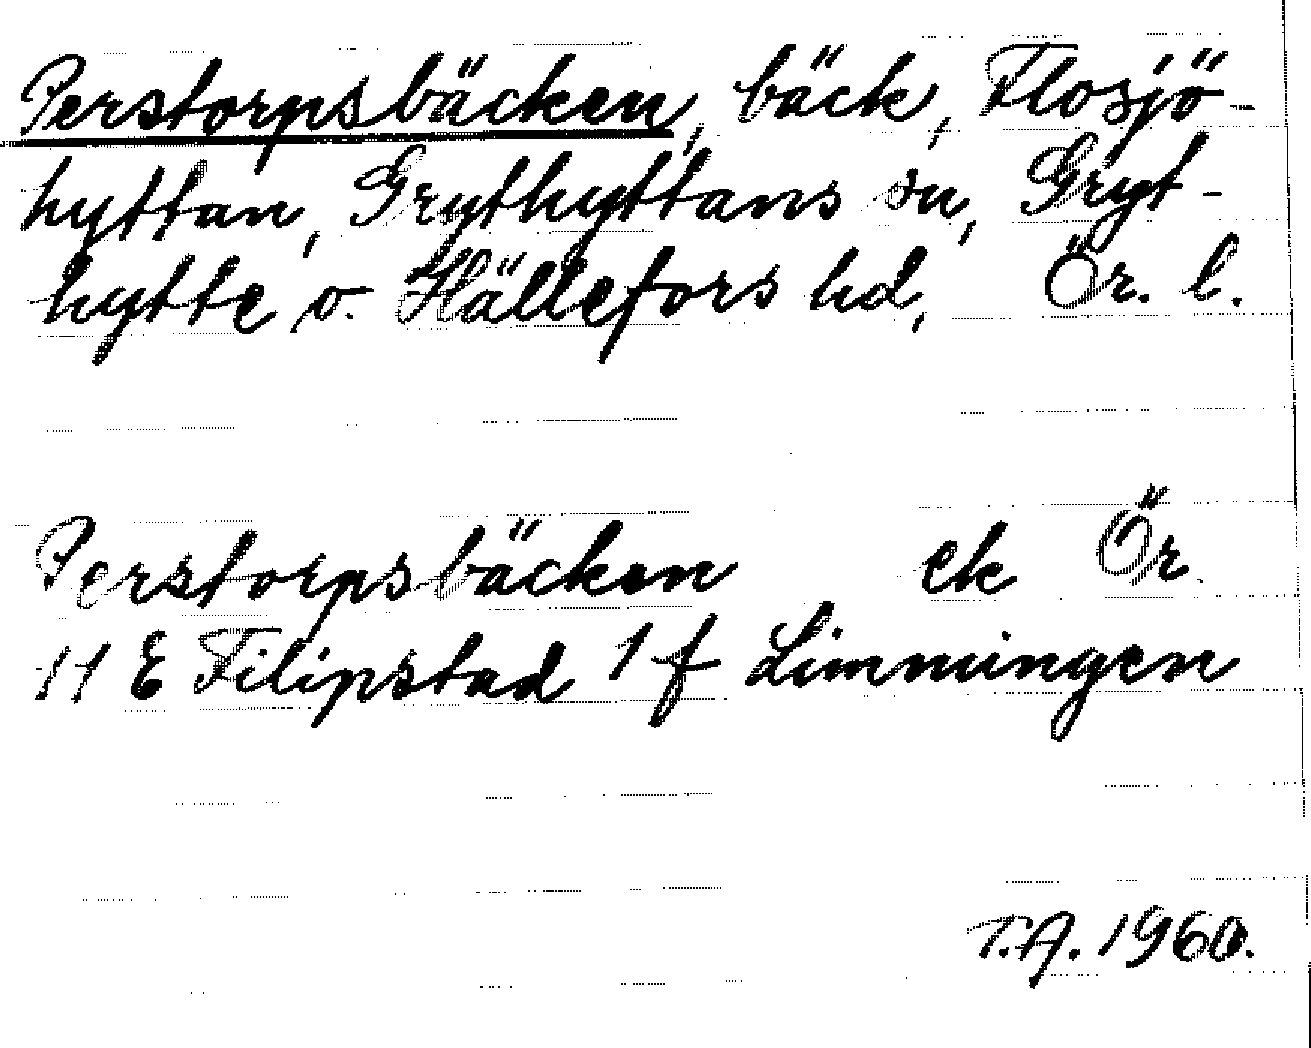 Perstorpsbäcken, bäck, Flosjö-
hyttan, Grythyttans sn, Gryt-
hytte o. Hällefors hd, Ör. l.
Perstorpsbäcken ek Ör
11 E Filipstad 1 f Limmingen
T.A. 1960.